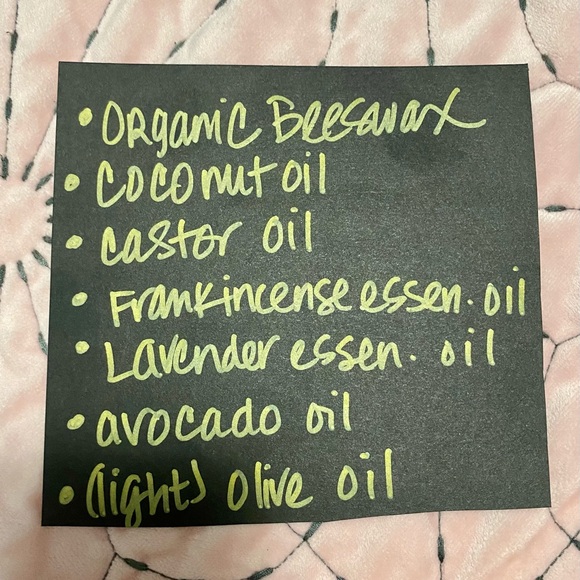 • ORganic Beeswax
• coconut oil
• castor oil
• Frankincense essen. oil
• Lavender essen. oil
• avocado oil
• (light) olive oil